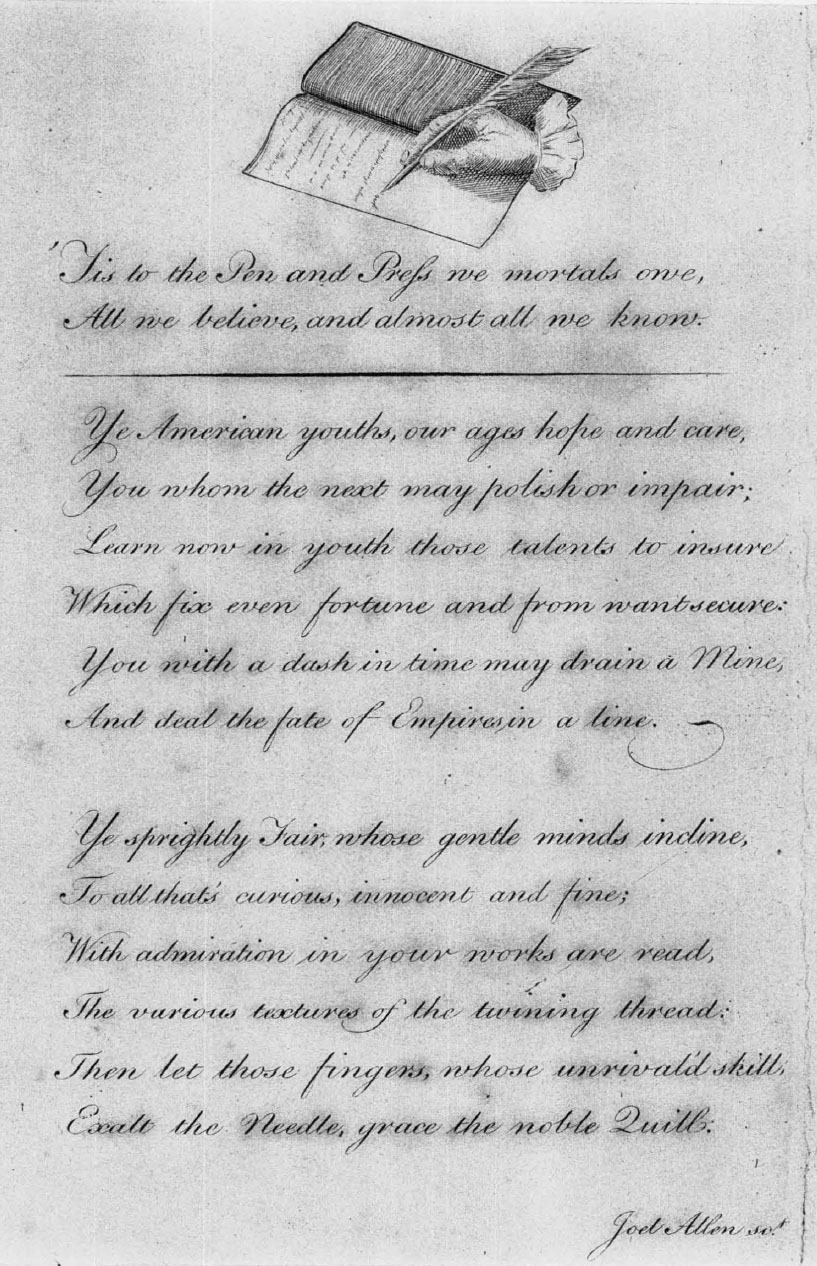 'Tis to the Pen and Preſs we mortals owe,
All we believe, and almost all we know.
Ye American youths, our ages hope and care,
You whom the next may polish or impair;
Learn now in youth those talents to insure
Which fix even fortune and from want secure:
You with a dash in time may drain a Mine,
And deal the fate of Empires, in a line.
Ye sprightly Fair, whose gentle minds incline,
To all that's curious, innocent and fine;
With admiration in your works are read,
The various textures of the twining thread:
Then let those fingers, whose unrival'd skill,
Exalt the Needle, grace the noble Quill.
Joel Allen sct